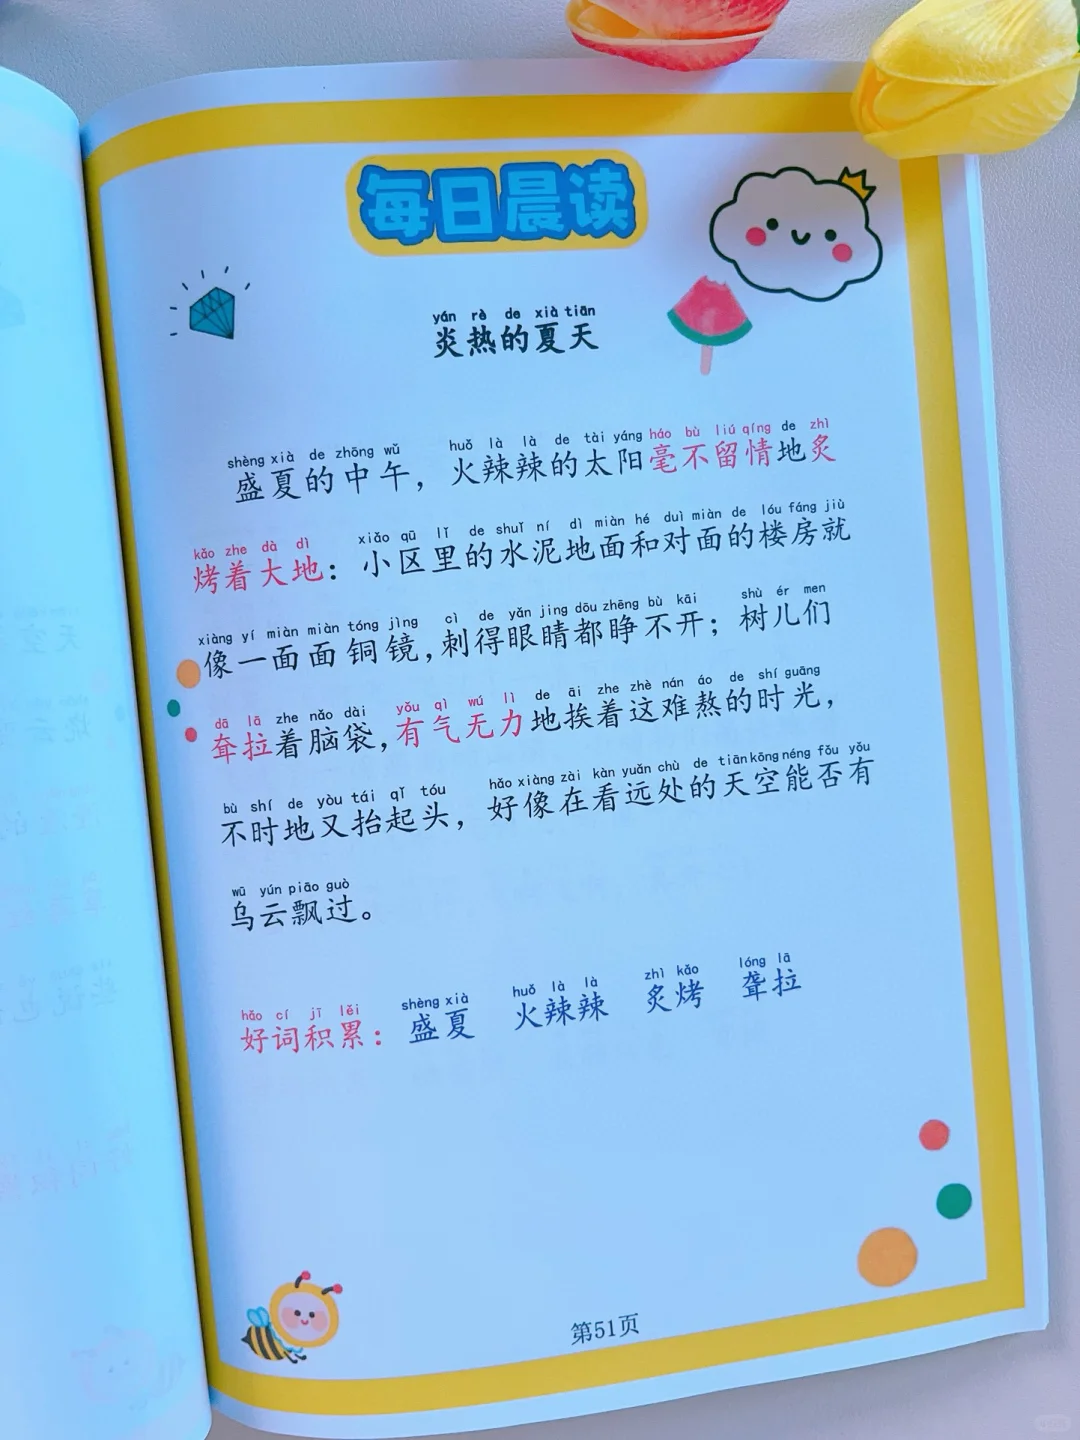 每日晨读
yán rè de xià tiān
炎热的夏天
shèng xià de zhōng wǔ huǒ là là de tài yáng háo bù liú qíng de zhì
盛夏的中午，火辣辣的太阳毫不留情地炙
kǎo zhe dà dì xiǎo qū lǐ de shuǐ ní dì miàn hé duì miàn de lóu fáng jiù
烤着大地：小区里的水泥地面和对面的楼房就
xiàng yí miàn miàn tóng jìng cì de yǎn jing dōu zhēng bù kāi shù ér men
像一面面铜镜，刺得眼睛都睁不开；树儿们
dā lā zhe nǎo dài yǒu qì wú lì de āi zhe zhè nán áo de shí guāng
耷拉着脑袋，有气无力地挨着这难熬的时光，
bù shí de yòu tái qǐ tóu hǎo xiàng zài kàn yuǎn chù de tiān kōng néng fǒu yǒu
不时地又抬起头，好像在看远处的天空能否有
wū yún piāo guò
乌云飘过。
hǎo cí jī lěi shèng xià huǒ là là zhì kǎo lóng lā
好词积累：盛夏 火辣辣 炙烤 聋拉
第51页